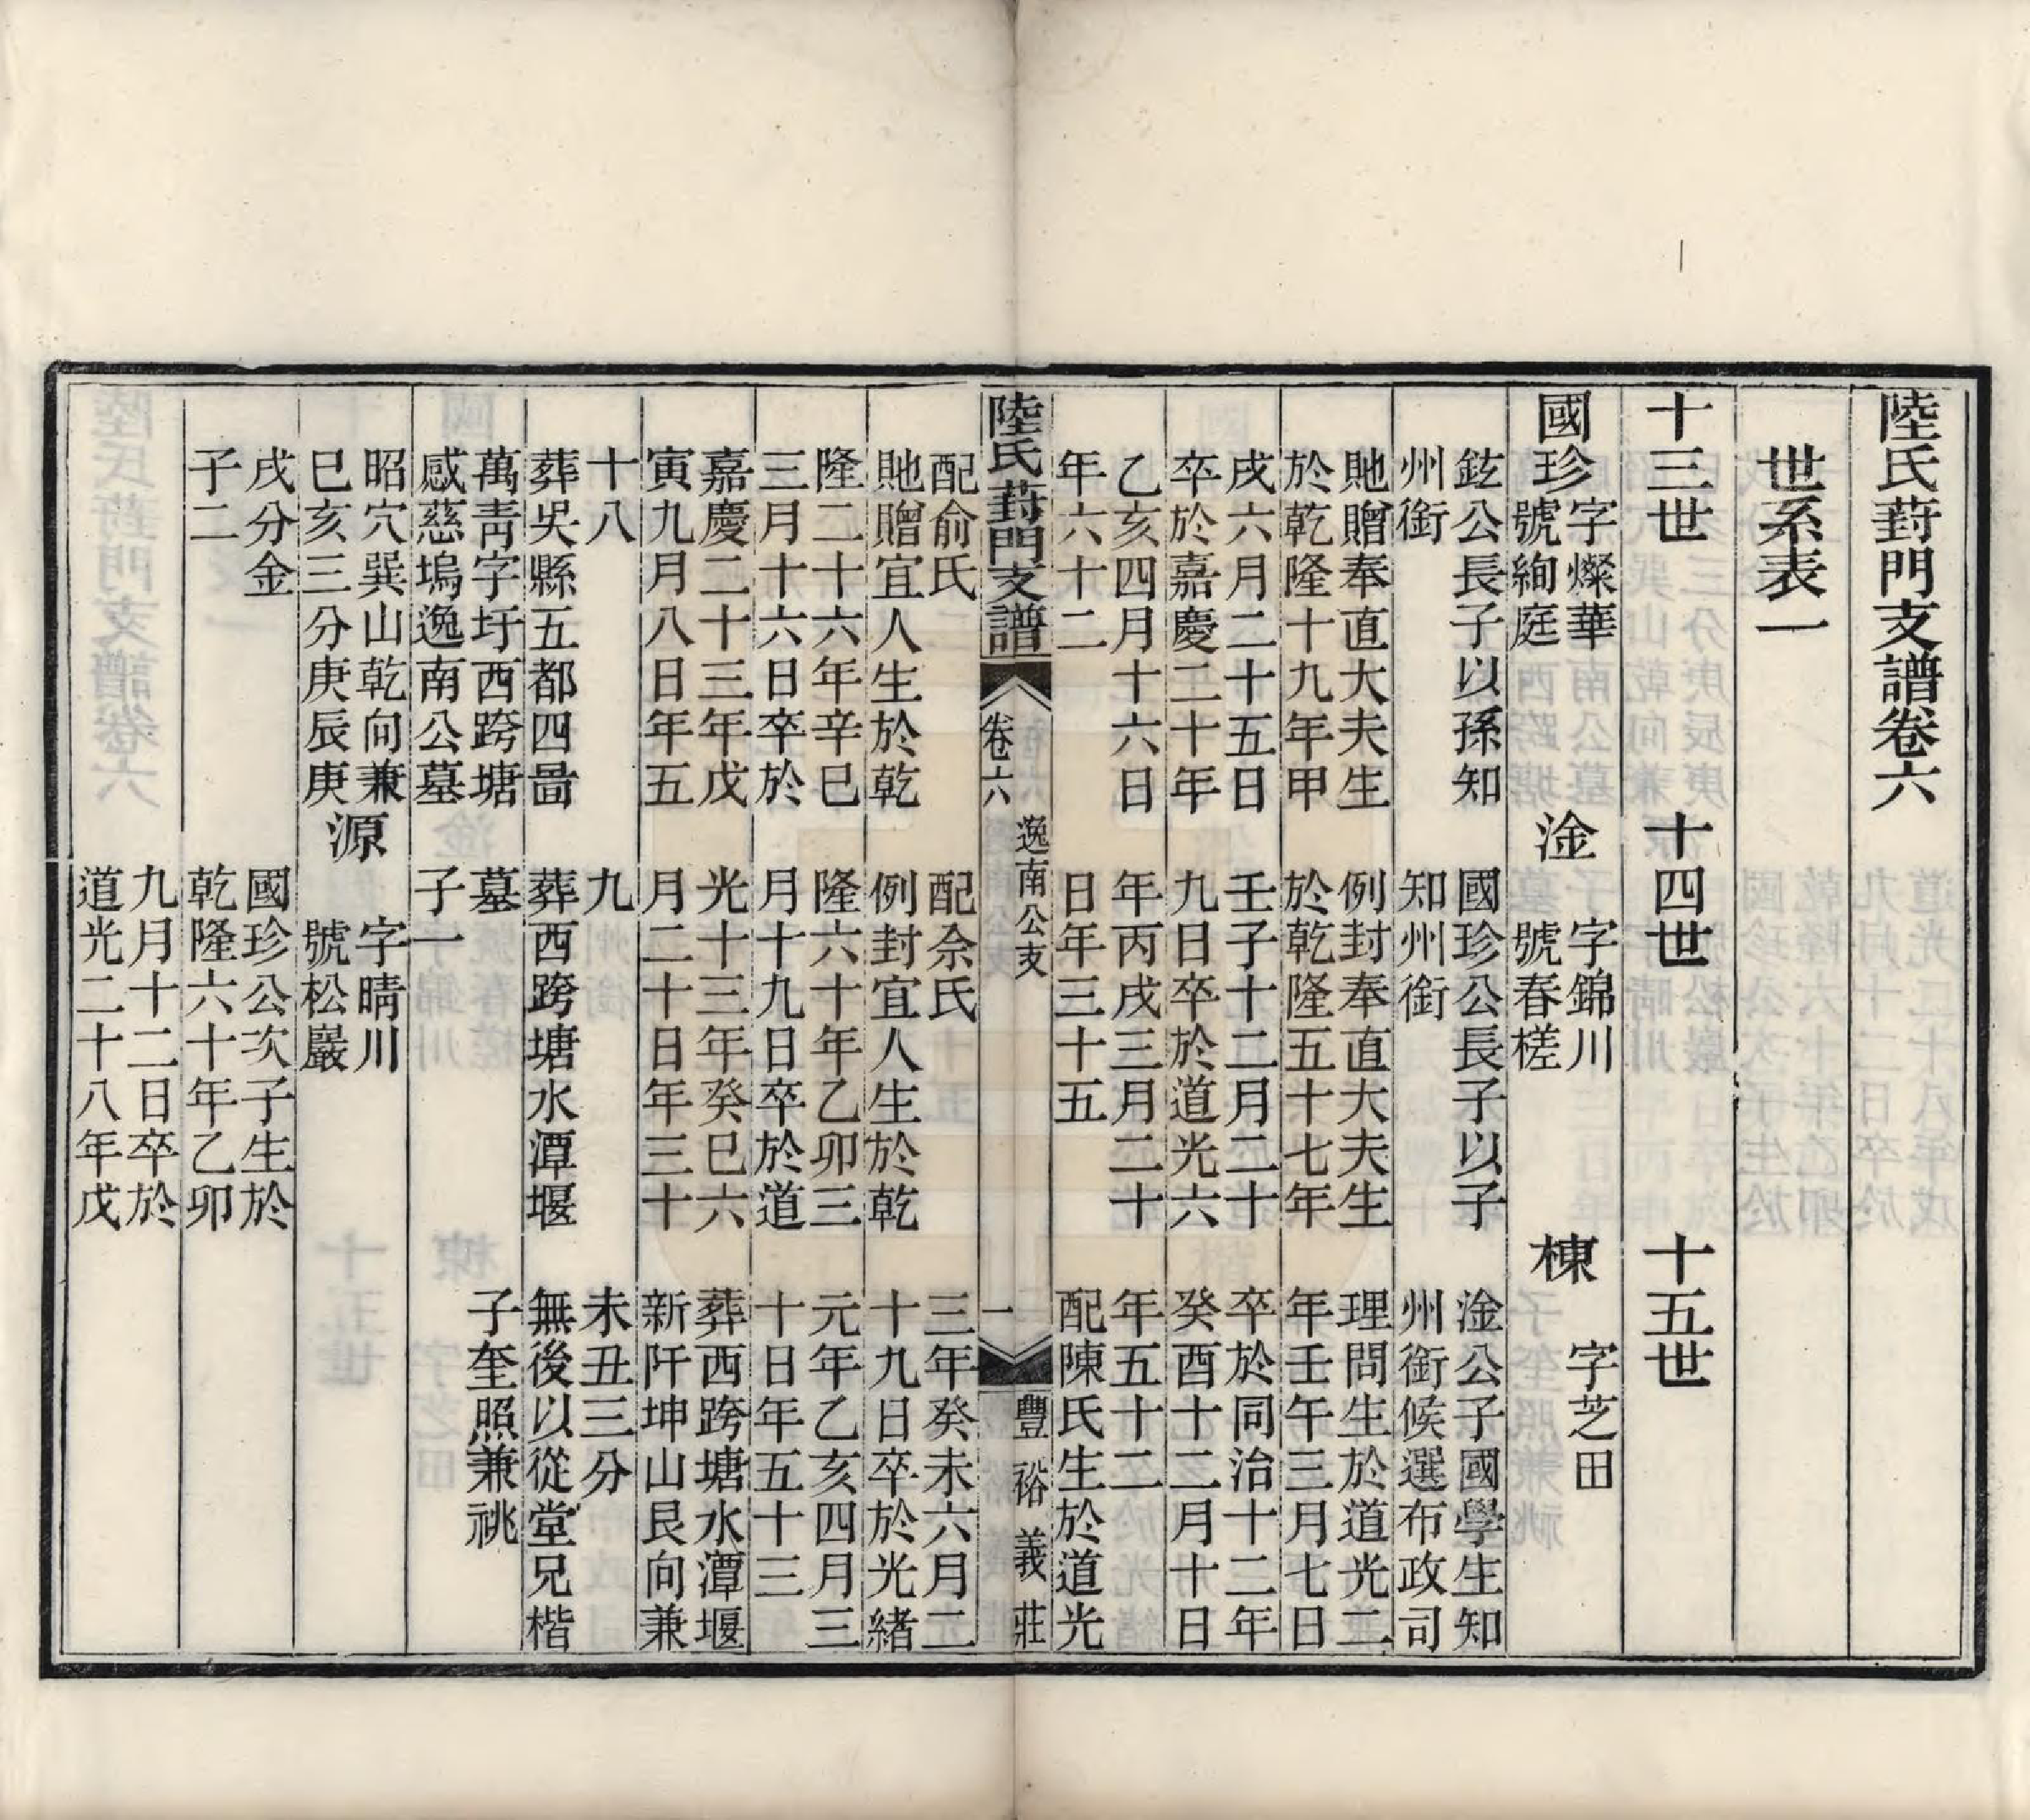 陸氏葑門支譜卷六
世系表一
十三世
十四世
十五世
國珍
字燦華
號絢庭
鉉公長子以孫知
州銜
貤贈奉直大夫生
於乾隆十九年甲
戌六月二十五日
卒於嘉慶二十年
乙亥四月十六日
年六十二
配俞氏
貤贈宜人生於乾
隆二十六年辛巳
三月十六日卒於
嘉慶二十三年戊
寅九月八日年五
十八
葬吳縣五都四啚
萬靑字圩西跨塘
感慈塢逸南公墓
昭穴巽山乾向兼
巳亥三分庚辰庚
戌分金
子二
淦
字錦川
號春槎
國珍公長子以子
知州銜
例封奉直大夫生
於乾隆五十七年
壬子十二月二十
九日卒於道光六
年丙戌三月二十
日年三十五
配佘氏
例封宜人生於乾
隆六十年乙卯三
月十九日卒於道
光十三年癸巳六
月二十日年三十
九
葬西跨塘水潭堰
墓
子一
源
字晴川
號松巖
國珍公次子生於
乾隆六十年乙卯
九月十二日卒於
道光二十八年戊
棟
字芝田
淦公子國學生知
州銜候選布政司
理問生於道光二
年壬午三月七日
卒於同治十二年
癸酉十二月十日
年五十二
配陳氏生於道光
三年癸未六月二
十九日卒於光緒
元年乙亥四月三
十日年五十三
葬西跨塘水潭堰
新阡坤山艮向兼
未丑三分
無後以從堂兄楷
子奎照兼祧
陸氏葑門支譜
卷六
逸南公支
一
豐裕義莊